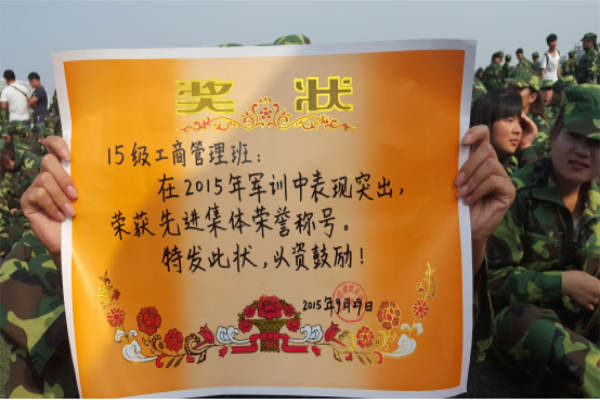 奖状
15级工商管理班：
在2015年军训中表现突出，
荣获先进集体荣誉称号。
特发此状，以资鼓励！
2015年9月29日